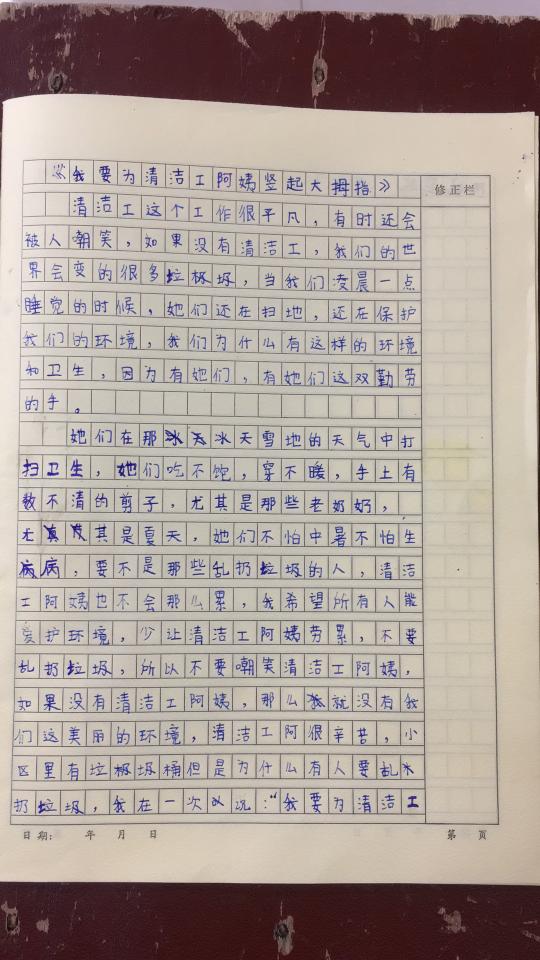 《我要为清洁工阿姨竖起大拇指》
修正栏
清洁工这个工作很平凡，有时还会
被人嘲笑，如果没有清洁工，我们的世
界会变的很多垃极圾，当我们凌晨一点
睡觉的时候，她们还在扫地，还在保护
我们的环境，我们为什么有这样的环境
和卫生，因为有她们，有她们这双勤劳
的手。
她们在那冰天雪地的天气中打
扫卫生，她们吃不饱，穿不暖，手上有
数不清的剪子，尤其是那些老奶奶，
尤其是夏天，她们不怕中暑不怕生
病，要不是那些乱扔垃圾的人，清洁
工阿姨也不会那么累，我希望所有人能
爱护环境，少让清洁工阿姨劳累，不要
乱扔垃圾，所以不要嘲笑清洁工阿姨，
如果没有清洁工阿姨，那么我就没有我
们这美丽的环境，清洁工阿很辛苦，小
区里有垃极圾桶但是为什么有人要乱
扔垃圾，我在一次以说："我要为清洁工
日期： 年 月 日 第 页